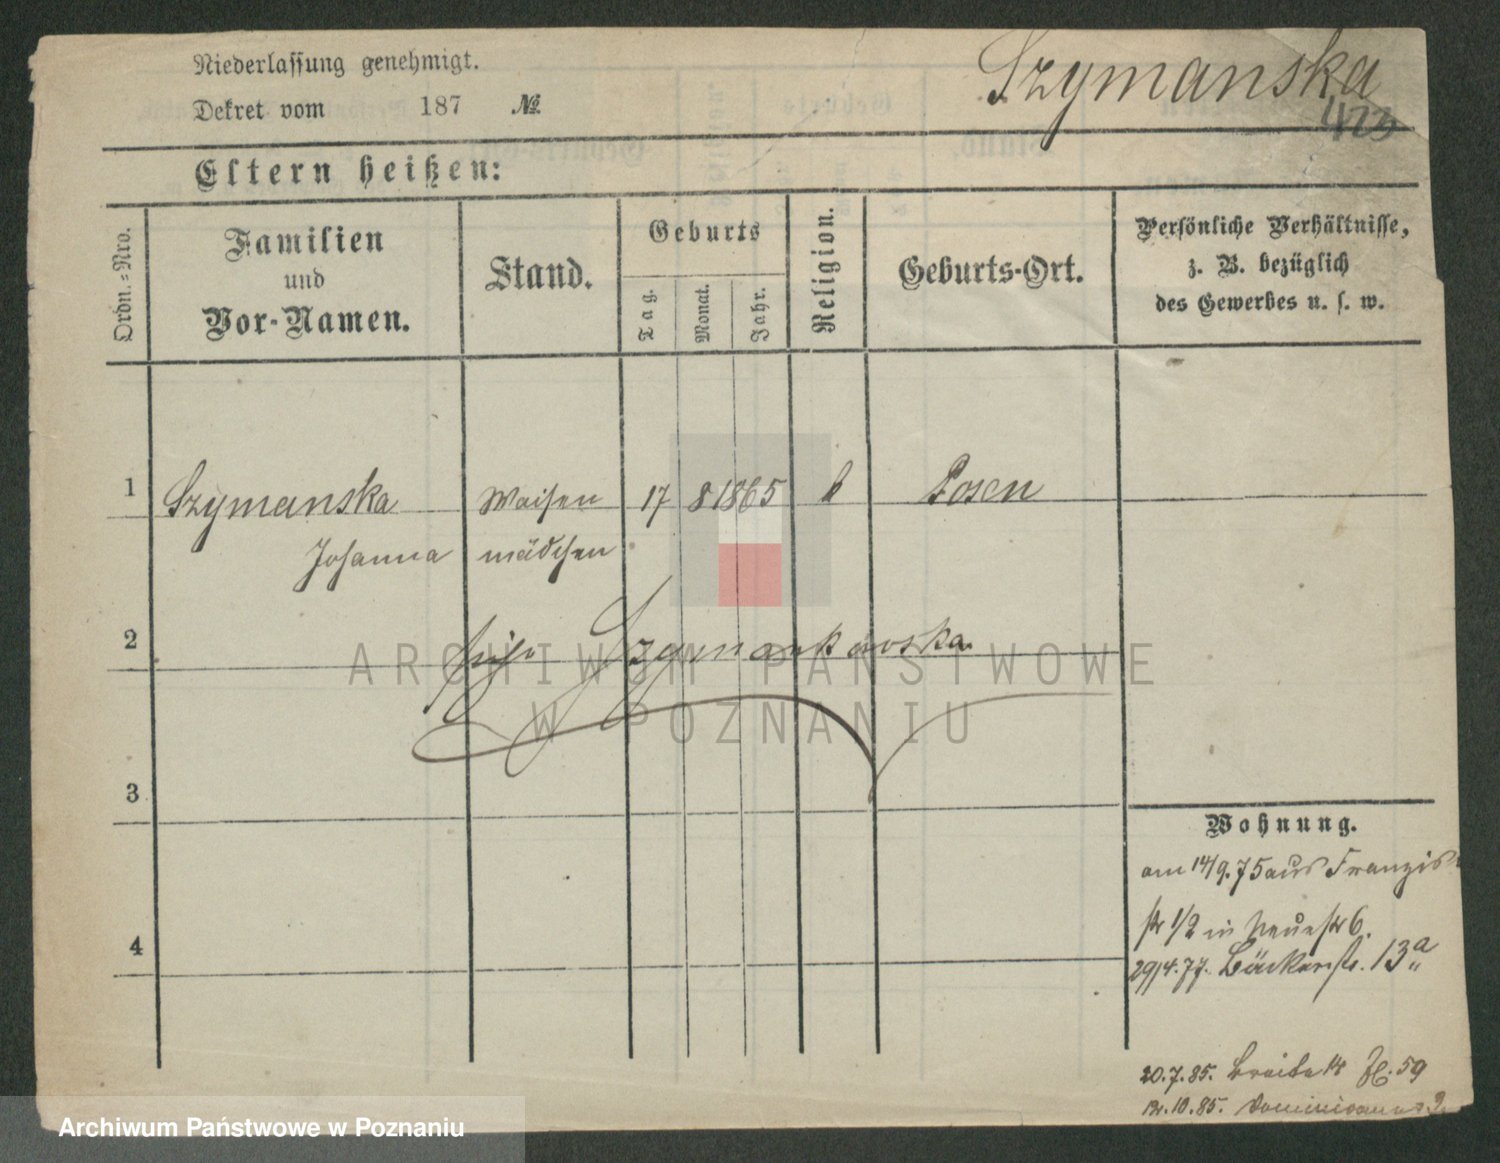 Niederlassung genehmigt.
Dekret vom 187 №
Szymanska
423
Eltern heißen:
Ordn.-Nro.
Familien
und
Vor-Namen.
Stand.
Geburts
Tag.
Monat.
Jahr.
Religion.
Geburts-Ort.
Persönliche Verhältnisse,
z. B. bezüglich
des Gewerbes u. s. w.
1 Szymanska Waisen 17 8 1865 k Posen
Johanna mädchen
2 Szymankowska
3
4
Wohnung.
am 14/9.75 aus Franzis
str 1/2 in Neuestr 6.
29/4.77. Bäckerstr. 13a
20.7.85. Breite 14 59
10.85. Dominicaner 9
ARCHIWUM PAŃSTWOWE
W POZNANIU
Archiwum Państwowe w Poznaniu